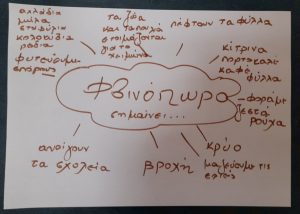 αχλάδια
μήλα
σταφύλια
κολοκύθια
ρόδια
φυτεύουμε
σπόρους
τα ζώα
και τα πουλιά
ετοιμάζονται
για το
χειμώνα
πέφτουν τα φύλλα
κίτρινα
πορτοκαλί
καφέ
φύλλα
Φθινόπωρο
σημαίνει...
φοράμε
ζεστά
ρούχα
ανοίγουν
τα σχολεία
βροχή
κρύο
μαζεύουμε τις
ελιές